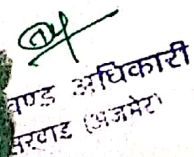 खण्ड अधिकारी
सरवाड (अजमेर)